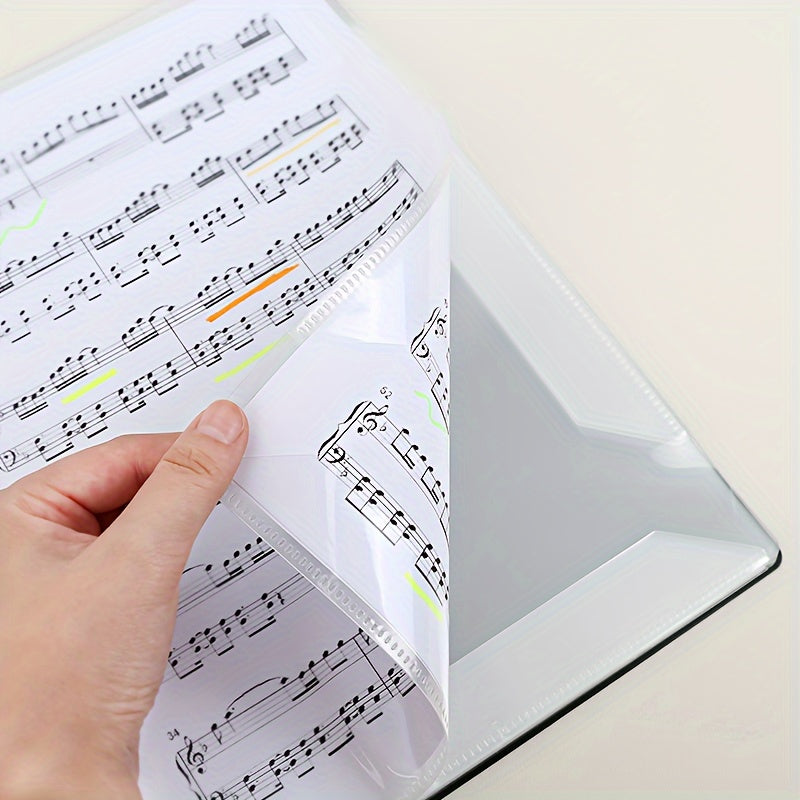 52
34